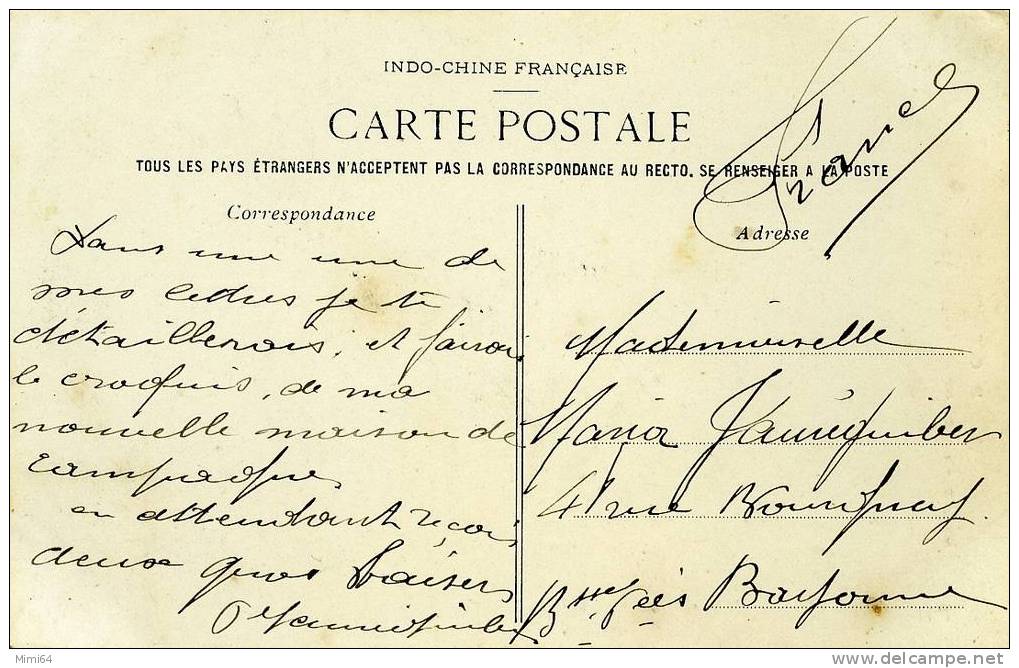 INDO-CHINE FRANÇAISE
CARTE POSTALE
TOUS LES PAYS ÉTRANGERS N'ACCEPTENT PAS LA CORRESPONDANCE AU RECTO. SE RENSEIGER A LA POSTE
France
Correspondance
Dans une une de
mes lettres je te
détaillerais, et fairai
le croquis, de ma
nouvelle maison de
campagne
en attendant reçois
deux gros baisers
Jaureguiber
Adresse
Mademoiselle
Maria Jaureguiber
41 rue Bourgneuf
Bsses Pées Bayonne
Mimi64
www.delcampe.net